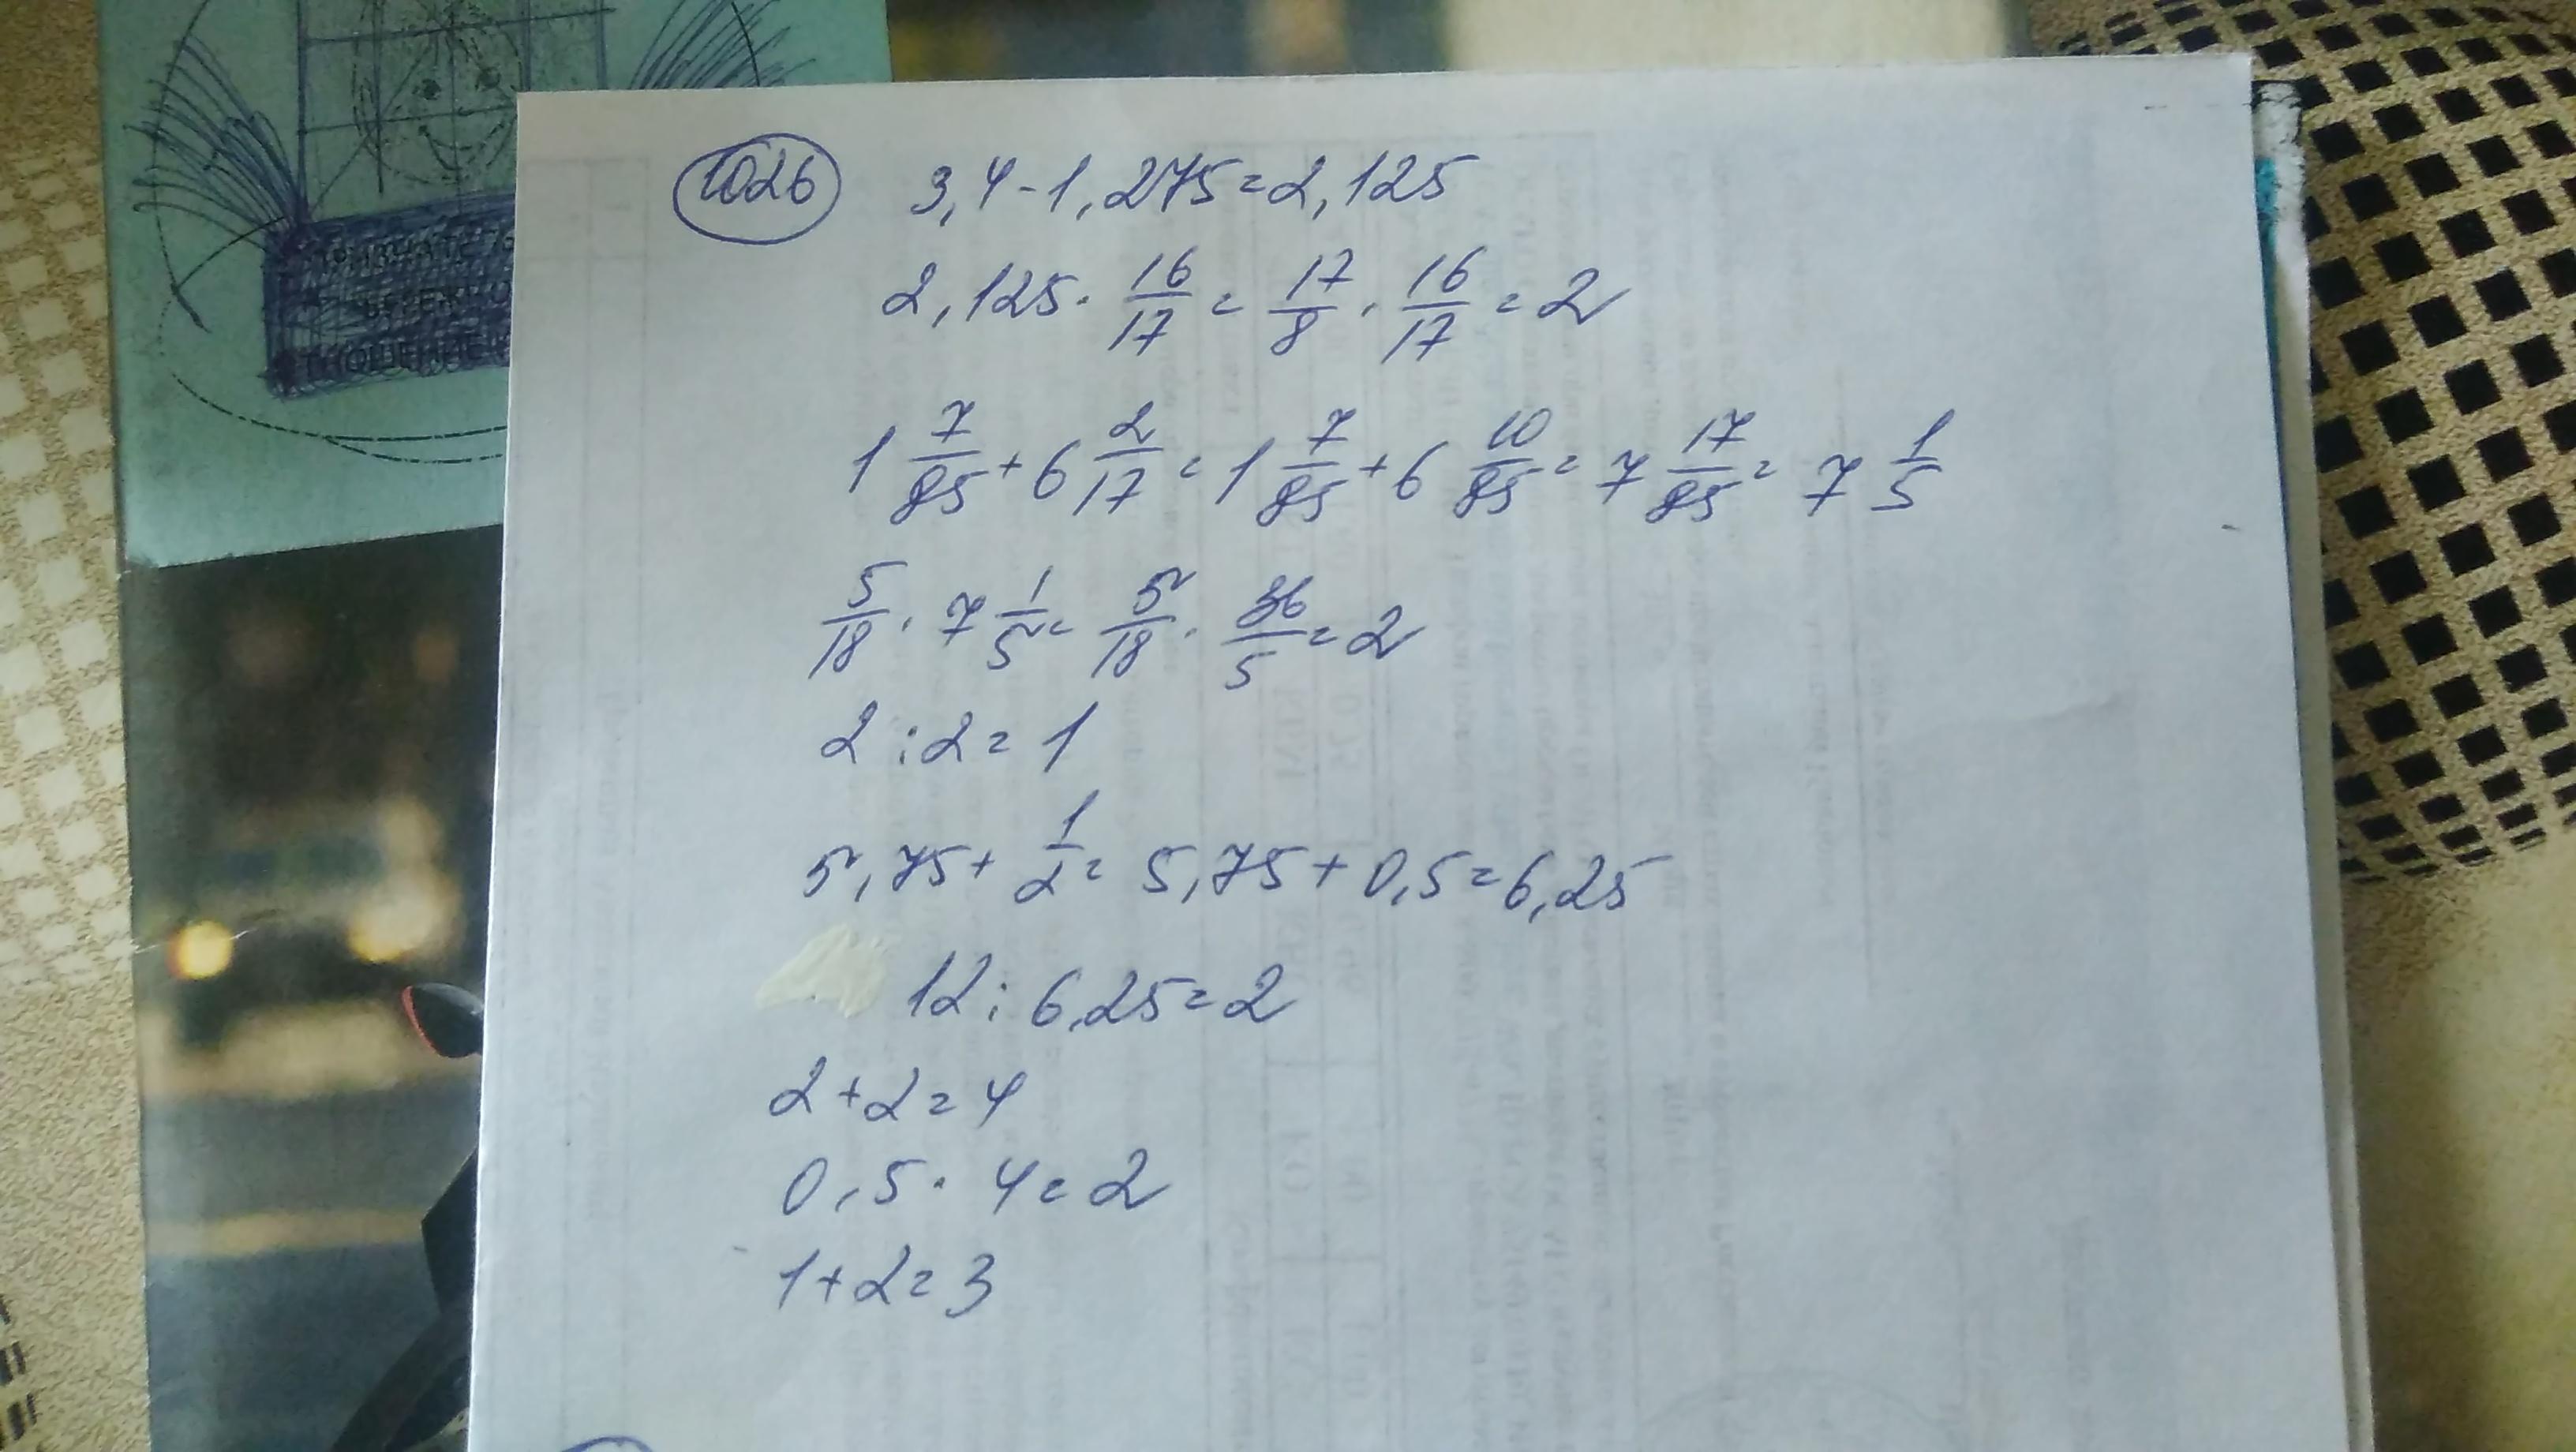 1026 3,4-1,275=2,125
2,125·16/17=17/8·16/17=2
1 7/85+6 2/17=1 7/85+6 10/85=7 17/85=7 1/5
5/18·7 1/5=5/18·36/5=2
2:2=1
5,75+1/2=5,75+0,5=6,25
12:6,25=2
2+2=4
0,5·4=2
1+2=3